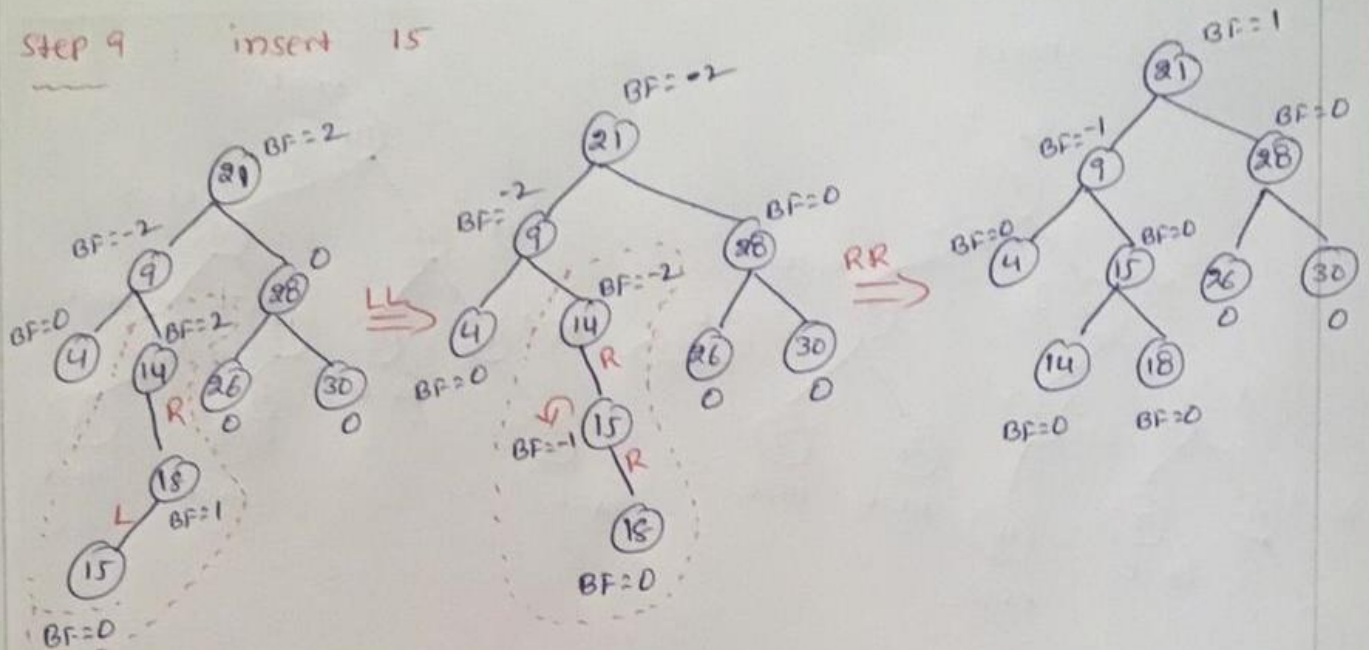 Step 9 insert 15
BF=2
21
BF=-2
9
0
28
BF=0
4
BF=2
14
26
0
30
0
R
18
BF=1
L
15
BF=0
LL
BF=-2
21
BF=-2
9
BF=0
28
4
BF=0
BF=-2
14
26
0
30
0
R
15
BF=-1
R
18
BF=0
RR
BF=1
21
BF=-1
9
BF=0
28
BF=0
4
BF=0
15
26
0
30
0
14
BF=0
18
BF=0